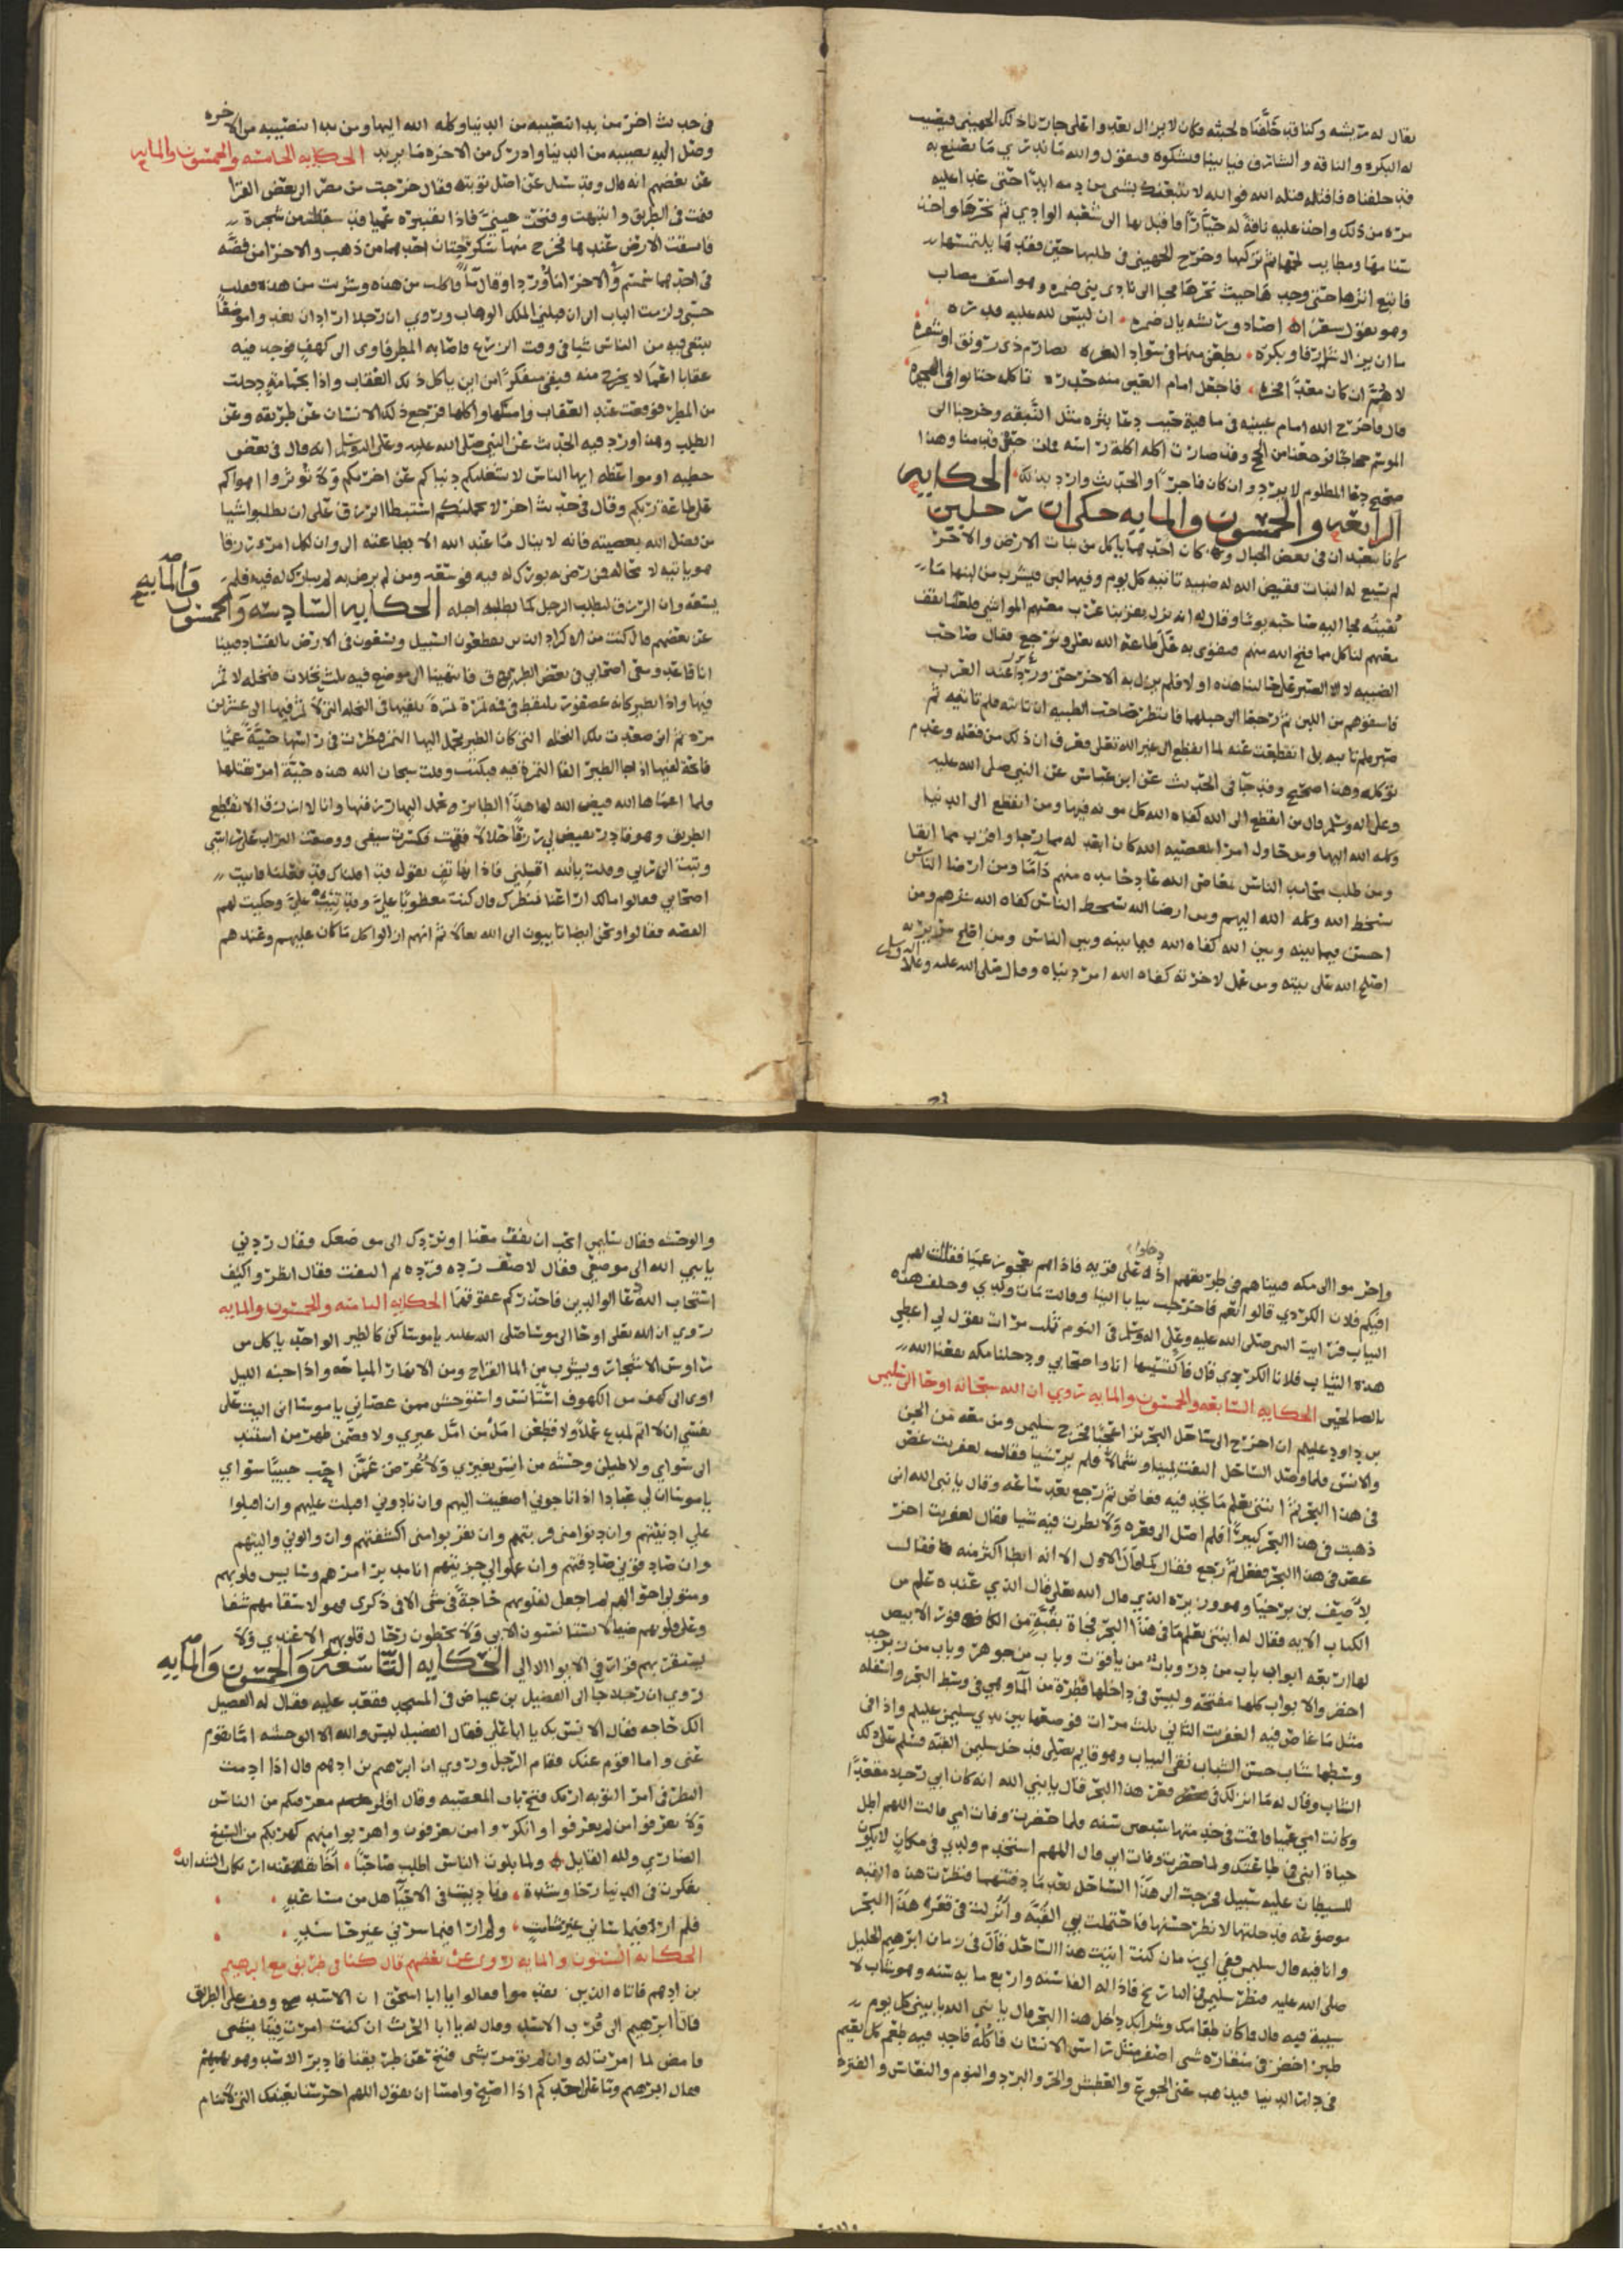 يقال له ريشه وكنا قد خلفناه لحيثه فكان لا يزال يعدوا على جار لنا ذلك الجهيني فيصيب
له البكره والناقه والشارف فياتينا فيشكوه فنقول والله ما ندري ما نصنع به
قد خلفناه فاقتله قتله الله فوالله لا نتبعك بشي من دمه ابدا حتى عدا عليه
مره من ذلك واخذ عليه ناقة له خيارا فاقبل بها الى شعبه الوادي ثم نحرها واخذ
سنامها ومطايب لحمها ثم تركها وخرج الجهيني في طلبها حين فقدها يلتمسها
فاتبع اثرها حتى وجدها حيث نحرها فجا الى نادي بني ضمره وهو اسف مصاب
وهو يقول شعرا اصادق ريشه يال ضمره ان ليس لله عليه قدره
ما ان يزال شارفا وبكره يطعن منها في سواد الثغره بصارم ذي رونق او شفره
لا هم ان كان معدا فجره فاجعل امام العين منه جدره تاكله حتى توافي الحفره
قال فاخرج الله امام عينيه في ماقيه حيث دعا بثره مثل النبقه وخرجنا الى
الموسم حجاجا فرجعنا من الحج وقد صارت اكله اكلة راسه فمات حتى قدمنا وهذا
صحيح دعا المظلوم لا يرد وان كان فاجرا والحديث وارد بذلك الحكايه
الرابعه والخمسون والمايه حكى ان رجلين
كانا يتعبدان في بعض الجبال وكان احدهما ياكل من نبات الارض والاخر
لم يتبع له النبات فقيض الله له ضبيه تاتيه كل يوم وفيها لبن فيشرب من لبنها ما
يقيته فجا اليه صاحبه يوما وقال له انه نزل بقربنا عرب معهم المواشي فلعلنا نقف
معهم لناكل مما فتح الله منهم فنقوى به على طاعة الله تعلى ونرجع فقال صاحب
الضبيه لا الا الصبر على حالينا هذه اولا فلم يزل به الاخر حتى وردا عند العرب
فاسقوهم من اللبن ثم رجعا الى جبلهما فانتظر صاحب الظبيه ان تاتيه فلم تاتيه ثم
صبر فلم تاتيه بل انقطعت عنه لما انقطع الى غير الله تعلى فعرف ان ذلك من فعله وعدم
توكله وهذا صحيح وقد جا في الحديث عن ابن عباس عن النبي صلى الله عليه
وعلى اله وسلم قال من انقطع الى الله كفاه الله كل مونه فيها ومن انقطع الى الدنيا
وكله الله اليها ومن حاول امرا بمعصيه الله كان ابعد له مما رجا واقرب مما اتقا
ومن طلب محامد الناس بمعاصي الله عاد حامده منهم ذاما ومن ارضا الناس
بسخط الله وكله الله اليهم ومن ارضا الله بسخط الناس كفاه الله شرهم ومن
احسن فيما بينه وبين الله كفاه الله فيما بينه وبين الناس ومن اصلح سريرته
اصلح الله علانيته ومن عمل لاخرته كفاه الله امر دنياه وقال صلى الله عليه وعلى اله وسلم
في حديث اخر من بدا بنصيبه من الدنيا وكله الله اليها ومن بدا بنصيبه من الاخره
وصل اليه نصيبه من الدنيا وادرك من الاخره ما يريد الحكايه الخامسه والخمسون والمايه
عن بعضهم انه قال وقد سئل عن اصل توبته فقال خرجت من مصر الى بعض القرا
فنمت في الطريق وانتبهت وفتحت عيني فاذا بقنبره عميا قد سقطت من شجرة
فانشقت الارض عندها فخرج منها سكرجتان احدهما من ذهب والاخرا من فضه
في احدهما سمسم والاخرا ما ورد او قال ما فاكلت من هذه وشربت من هذه فقلت
حسبي ولزمت الباب الى ان قبلني الملك الوهاب وروي ان رجلا اراد ان يقعد موضعا
يبتغي فيه من الناس شيا في وقت الزرع فاصابه المطر فاوى الى كهف فوجد فيه
عقابا اعما لا يخرج منه فبقي متفكرا من اين ياكل ذلك العقاب واذا بحمامه دخلت
من المطر فوقعت عند العقاب وامسكها واكلها فرجع ذلك الانسان عن طريقه وعن
الطلب وهذا ورد فيه الحديث عن النبي صلى الله عليه وعلى اله وسلم انه قال في بعض
خطبه او مواعظه ايها الناس لا تشغلنكم دنياكم عن اخرتكم ولا تؤثروا اهواكم
على طاعة ربكم وقال في حديث اخر لا يحملنكم استبطا الرزق على ان تطلبوا شيا
من فضل الله بمعصيته فانه لا ينال ما عند الله الا بطاعته الى وان لكل امرء رزقا
هو ياتيه لا محاله فمن رضي به بورك له فيه فوسعه ومن لم يرض به لم يبارك له فيه فلم
يسعه وان الرزق ليطلب الرجل كما يطلبه اجله الحكايه السادسه والخمسون والمايه
عن بعضهم قال كنت من الاكراد الذين يقطعون السبيل ويسعون في الارض بالفساد فبينا
انا قاعد ومعي اصحابي في بعض الطريق فانتهينا الى موضع فيه ثلث نخلات فنخله لا تمر
فيها واذا بطير كانه عصفور يلتقط في فمه تمرة تمرة يلقيها في النخله التي لا تمر فيها الى عشرين
مره ثم اني صعدت تلك النخله التي كان الطير يحمل اليها التمر فنظرت في راسها حية عميا
فاتحة لفيها اذ جا الطير القا التمره فيه فبكيت وقلت سبحان الله هذه حية امر بقتلها
ولما اعماها الله قيض الله لها هذا الطاير وتحمل اليها رزقها وانا لا ارزق الا بقطع
الطريق وهو قادر يقيض لي رزقا حلالا فقمت فكسرت سيفي ووضعت التراب على راسي
وتبت الى ربي وقلت يالله اقبلني فاذا بهاتف يقول قد اقلناك قد قبلنا فاتيت
اصحابي فقالوا مالك ارتاعنا منظرك قال كنت مغضوبا علي وقد تيب علي وحكيت لهم
القصه فقالوا ونحن ايضا تايبون الى الله تعالا ثم انهم ازالوا كل ما كان عليهم وعندهم
واحرموا الى مكه فبيناهم في طريقهم اذ دخلوا على قريه فاذا هم بعجوز عميا فقالت لهم
افيكم فلان الكردي قالوا نعم فاخرجت ثيابا الينا وقالت مات ولدي وخلف هذه
الثياب فرايت النبي صلى الله عليه وعلى اله وسلم في النوم ثلث مرات يقول لي اعطي
هذه الثياب فلانا الكردي قال فاكتسيتها انا واصحابي ودخلنا مكه نفعنا الله
بالصالحين الحكايه السابعه والخمسون والمايه روي ان الله سبحانه اوحا الى سليمن
بن داود عليهم ان اخرج الى ساحل البحر تر اعجبا فخرج سليمن ومن معه من الجن
والانس فلما وصل الساحل التفت يمينا وشمالا فلم ير شيا فقال لعفريت غص
في هذا البحر ثم ائتني بعلم ما تجد فيه فغاص ثم رجع بعد ساعه وقال يا نبي الله اني
ذهبت في هذا البحر كبيرا فلم اصل الى قعره ولا نظرت فيه شيا فقال لعفريت اخر
غص في هذا البحر ففعل ثم رجع فقال كما قال الاول الا انه ابطا اكثر منه فقال
لاصف بن برخيا وهو وزيره الذي قال الله تعلى قال الذي عنده علم من
الكتاب الايه فقال له ائتني بعلم ما في هذا البحر فجاه بقبة من الكافور الابيض
لها اربعه ابواب باب من در وباب من ياقوت وباب من جوهر وباب من زبرجد
اخضر والابواب كلها مفتحه وليس في داخلها قطرة من الما وهي في وسط البحر واسفله
مثل ما غاص فيه العفريت الثاني ثلث مرات فوضعها بين يدي سليمن عليلم واذا في
وسطها شاب حسن الشباب نقي الثياب وهو قايم يصلي فدخل سليمن القبه فسلم على ذلك
الشاب وقال له ما انزلك في قعر هذا البحر قال يا نبي الله انه كان ابي رجلا مقعدا
وكانت امي عميا فاقمت في خدمتها سبعين سنه ولما حضرت وفات امي قالت اللهم اطل
حياة ابني في طاعتك ولما حضرت وفات ابي قال اللهم استخدم ولدي في مكان لا يكون
للشيطان عليه سبيل فخرجت الى هذا الساحل بعد ما دفنتهما فنظرت هذه القبه
موضوعه فدخلتها لانظر حسنها فاحتملت بي القبه وانزلت في قعر هذا البحر
وانا فيه قال سليمن ففي اي زمان كنت اتيت هذا الساحل قال في زمان ابرهيم الخليل
صلى الله عليه فنظر سليمن في التاريخ فاذا له الفا سنه واربع مايه سنه وهو شاب لا
شيبة فيه قال فما كان طعامك وشرابك داخل هذا البحر قال يا نبي الله ياتيني كل يوم
طير اخضر في منقاره شي اصفر مثل راس الانسان فاكله فاجد فيه طعم كل نعيم
في دار الدنيا فيذهب عني الجوع والعطش والحر والبرد والنوم والنعاس والفتره
والوحشه فقال سليمن اتحب ان تقف معنا او نردك الى موضعك فقال ردني
يا نبي الله الى موضعي فقال لاصف رده فرده ثم التفت فقال انظروا كيف
استجاب الله دعا الوالدين فاحذركم عقوقهما الحكايه الثامنه والخمسون والمايه
روي ان الله تعلى اوحا الى موسا صلى الله عليه يا موسا كن كالطير الواحد ياكل من
رؤوس الاشجار ويشرب من الما القراح ومن الانهار المباحه واذا جنه الليل
اوى الى كهف من الكهوف استانس واستوحش ممن عصاني يا موسا اني اليت على
نفسي ان لا اتم لمدع عملا ولا قطعن امل من امل غيري ولا قصمن ظهر من استند
الى سواي ولا طيلن وحشه من انس بغيري ولا عرضن عمن احب حبيبا سواي
يا موسا ان لي عبادا اذا ناجوني اصغيت اليهم وان نادوني اقبلت عليهم وان اقبلوا
علي ادنيتهم وان دنوا مني قربتهم وان تقربوا مني اكتنفتهم وان والوني واليتهم
وان صادقوني صادقتهم وان عملوا لي جزيتهم انا مدبر امرهم وسايس قلوبهم
ومتولي احوالهم لم اجعل لقلوبهم حاجة في شي الا في ذكرى فهو لاسقامهم شفا
وعلى قلوبهم ضيا لا يستانسون الا بي ولا يحطون رحال قلوبهم الا عندي ولا
يستقر بهم قرار في الابواء الا الي الحكايه التاسعه والخمسون والمايه
روي ان رجلا جا الى الفضيل بن عياض في المسجد فقعد عليه فقال له الفضيل
الك حاجه فقال الانس بك يا ابا علي فقال الفضيل ليس والله الا الوحشه اما تقوم
عني واما اقوم عنك فقام الرجل وروي ان ابرهيم بن ادهم قال اذا ادمت
النظر في امر التوبه ارتك قبح باب المعصيه وقال اقلوا معرفتكم من الناس
ولا تعرفوا من لم يعرفوا وانكروا من تعرفون واهربوا منهم كهربكم من السبع
الضاري ولله القايل ولما بلوت الناس اطلب صاحبا اخا ثقة عند ارتكاب الشدايد
تفكرت في الدنيا رخا وشدة وناديت في الاحيا هل من مساعد
فلم ار فيما ساني غير شامت ولم ار فيما سرني غير حاسد
الحكايه الستون والمايه روى عن بعضهم قال كنا في طريق مع ابرهيم
بن ادهم فاتاه الذين تقدموا فقالوا يا ابا اسحق ان الاسد وقف على الطريق
فاتا ابرهيم الى قرب الاسد وقال له يا ابا الحرث ان كنت امرت فينا بشي
فامض لما امرت له وان لم تؤمر بشي فتنح عن طريقنا فادبر الاسد وهو يهمهم
فقال ابرهيم وما على احدكم اذا اصبح وامسا ان يقول اللهم احرسنا بعينك التي لا تنام